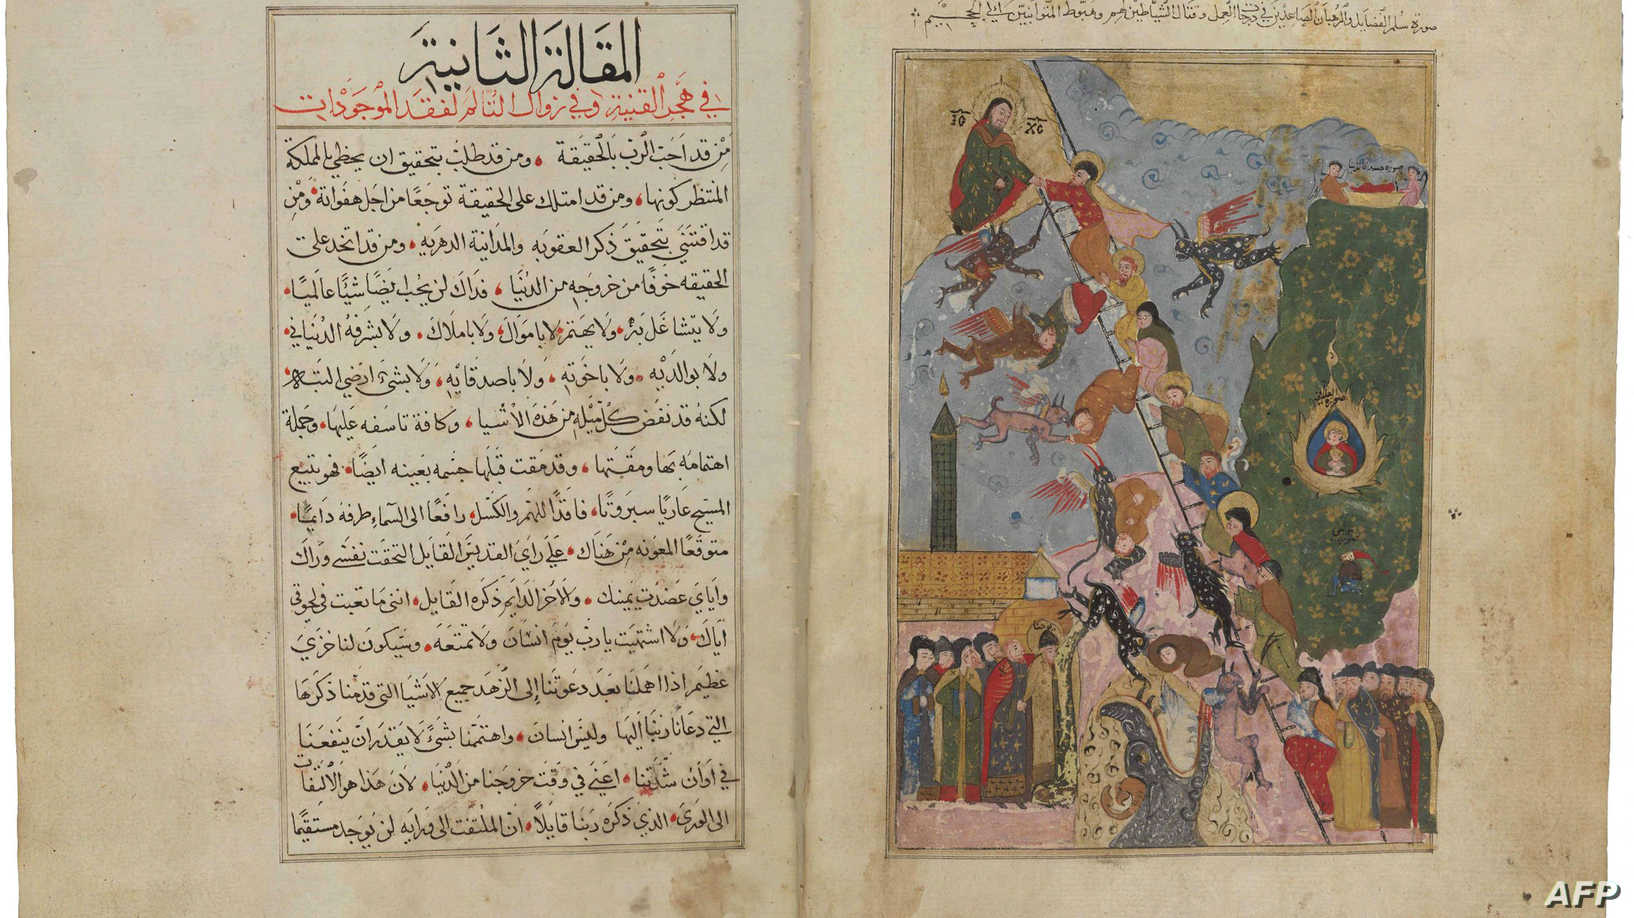 المقالة الثانية
في هجر القنية وفي زوال التألم لفقد الموجودات
من قد احب الرب بالحقيقة ، ومن قد طلب بتحقيق ان يحظي بالمملكة
المنتظر كونها ، ومن قد امتلك علي الحقيقة توجعًا من اجل هفواته ومن
قد اقتني بتحقيق ذكر العقوبه والمداينة الدهريه ، ومن قد اتخد علي
الحقيقه خوفًا من خروجه من الدنيا ، فذاك لن يحب ايضًا شيًا عالميًا
ولا يتشاغل به ولا يهتم لا باموال ولا باملاك ولا بشرفه الدنياني
ولا بوالديه ولا باخوته ولا باصدقايه ولا بشي ارضي البته
لكنه قد نفض كل ميله من هذه الاشيا ، وكافة تاسفه عليها وجملة
اهتمامه بها ومقتها ، وقد مقت قبلها جسمه بعينه ايضًا فهو يتبع
المسيح عاريًا سبروتًا فاقدًا للهم والكسل رافعًا الي السماء طرفه دايمًا
متوقعًا المعونه من هناك علي راي القديس القايل التحقت نفسي وراك
واياي عضدت يمينك والاخر الدايم ذكره القايل انني ما تعبت في لحوقي
اياك ولا اشتهيت يا رب يوم انسان ولا تمتعه وسيكون لنا خزي
عظيم اذا اهملنا بعد دعوتنا إلي الزهد جميع الاشيا التي قدمنا ذكرها
التي دعانا ربنا اليها وليس انسان واهتممنا بشي لا يقدر ان ينفعنا
في اوان شدتنا اعني في وقت خروجنا من الدنيا لان هذا هو الالتفات
الي الوري الذي ذكره ربنا قايلًا ان الملتفت الي ورايه لن يوجد مستقيمًا
صورة سلم الفضايل والرهبان الصاعدين في درجات العمل وقتال الشياطين لهم وهبوط المتوانيين الي الجحيم
IC XC
AFP